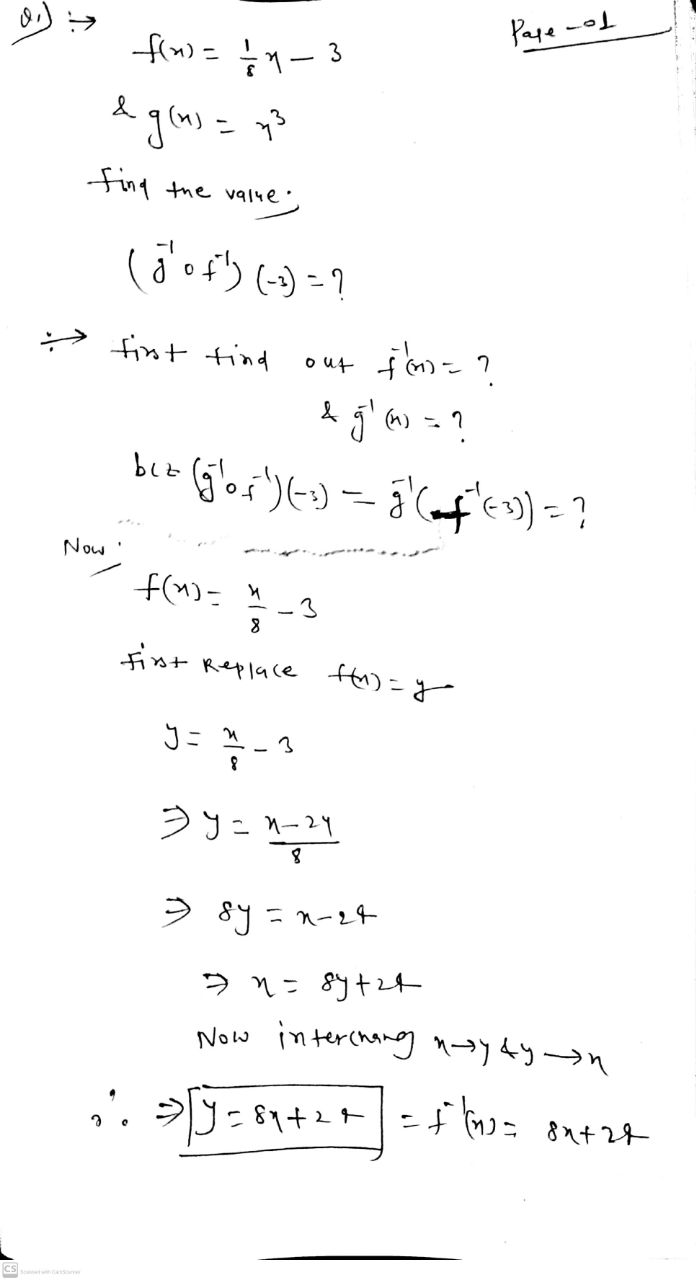 Q.1) :→ Page-01
f(x) = 1/8 x - 3
& g(x) = x³
find the value:
(g⁻¹ o f⁻¹) (-3) = ?
÷→ first find out f⁻¹(x) = ?
& g⁻¹ (x) = ?
bcz (g⁻¹ o f⁻¹)(-3) = g⁻¹(f⁻¹(-3)) = ?
Now:
f(x) = x/8 - 3
first Replace f(x) = y
y = x/8 - 3
⇒ y = x-24/8
⇒ 8y = x-24
⇒ x = 8y+24
Now interchang x→y & y→x
∴ ⇒ y = 8x+24 = f⁻¹(x) = 8x+24
CS Scanned with CamScanner